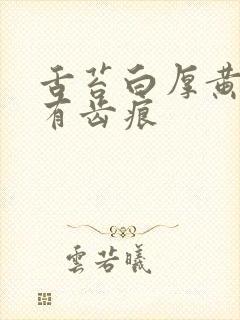 舌苔白厚黄
有齿痕
雲若曦